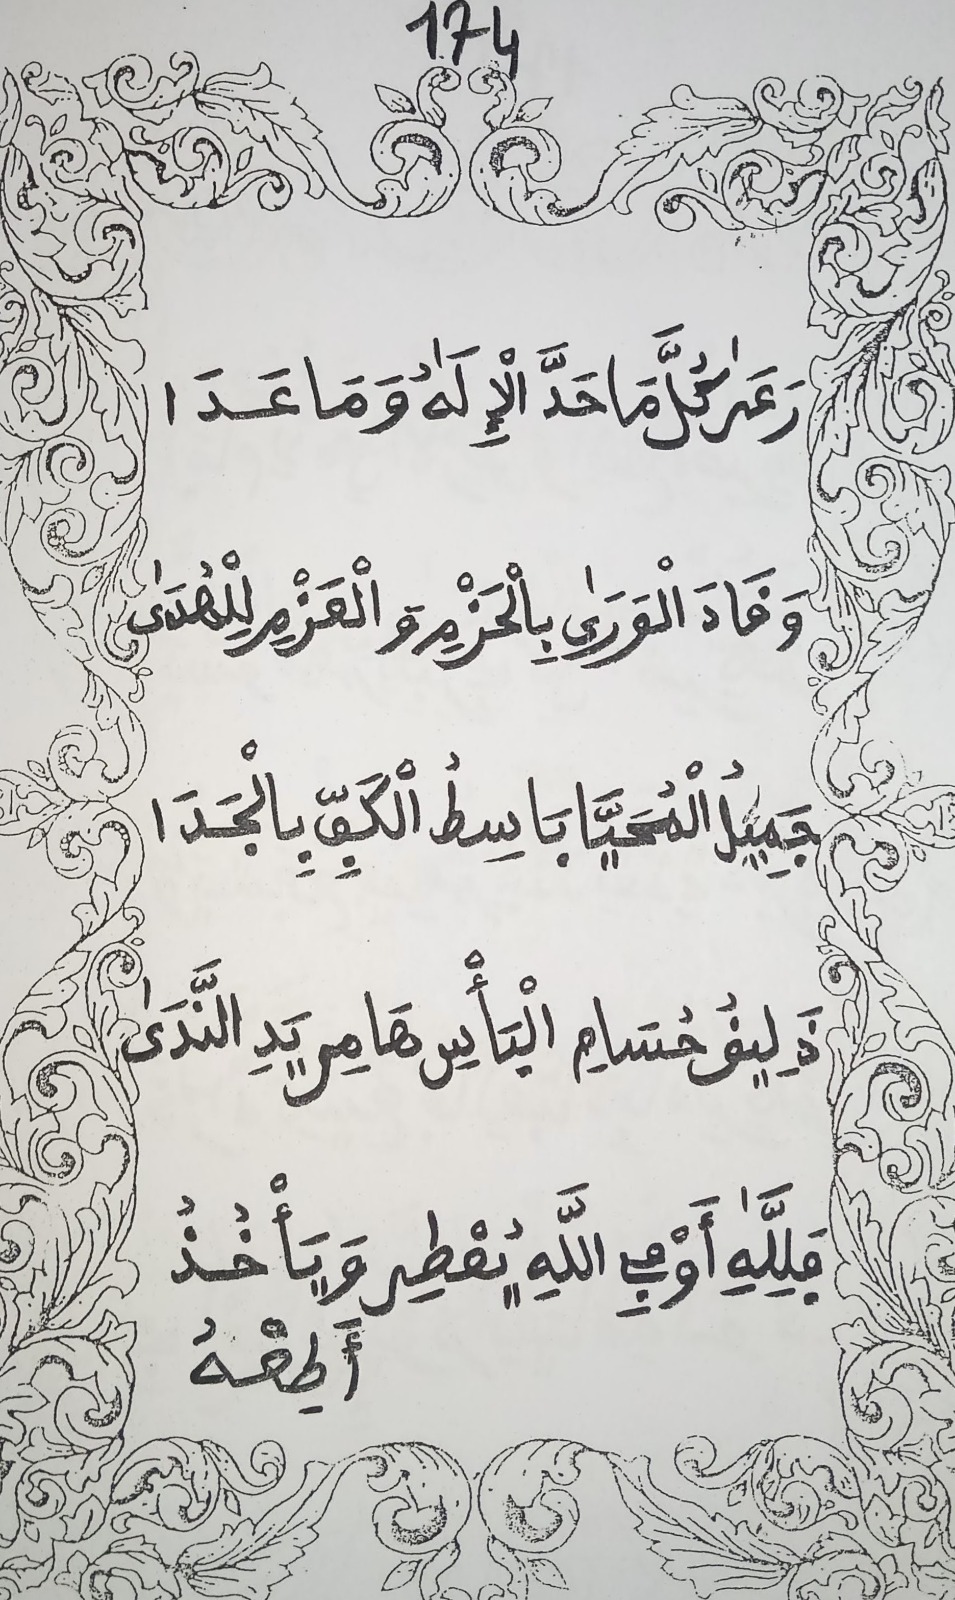 174
رَعَىٰ كُلَّ مَا حَدَّ الْإِلَٰهُ وَمَا عَدَا
وَقَادَ الْوَرَىٰ بِالْحَزْمِ وَالْعَزْمِ لِلْهُدَىٰ
جَمِيلُ الْمُحَيَّا بَاسِطُ الْكَفِّ بِالْجَدَا
ذَلِيقُ حُسَامِ الْبَأْسِ هَامِي يَدِ النَّدَىٰ
فَلِلَّٰهِ أَوْ فِي اللَّهِ يُعْطِي وَيَأْخُذُ
أَطِعْهُ